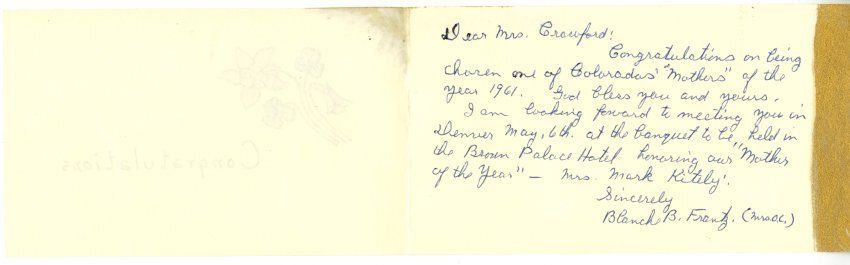 Dear Mrs. Crawford:
Congratulations on being
chosen one of Colorados' "Mothers" of the
year 1961. God bless you and yours.
I am looking forward to meeting you in
Denver May, 6th. at the banquet to be, held in
the Brown Palace Hotel honoring our "Mother
of the Year" — Mrs. Mark Kitely.
Sincerely
Blanche B. Frantz. (Mrs. O.C.)
Congratulations